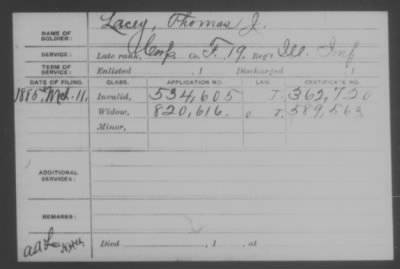 NAME OF SOLDIER: Lacey, Thomas J.
SERVICE: Late rank, Corp, Co. F, 19, Reg't Ill. Inf
TERM OF SERVICE: Enlisted , 1 Discharged , 1
DATE OF FILING. CLASS. APPLICATION NO. LAW. CERTIFICATE NO.
1885, Mch. 11, Invalid, 534,605 J. 362,720
Widow, 820,616. O J. 589,563
Minor,
ADDITIONAL SERVICES:
REMARKS:
Died , 1 , at